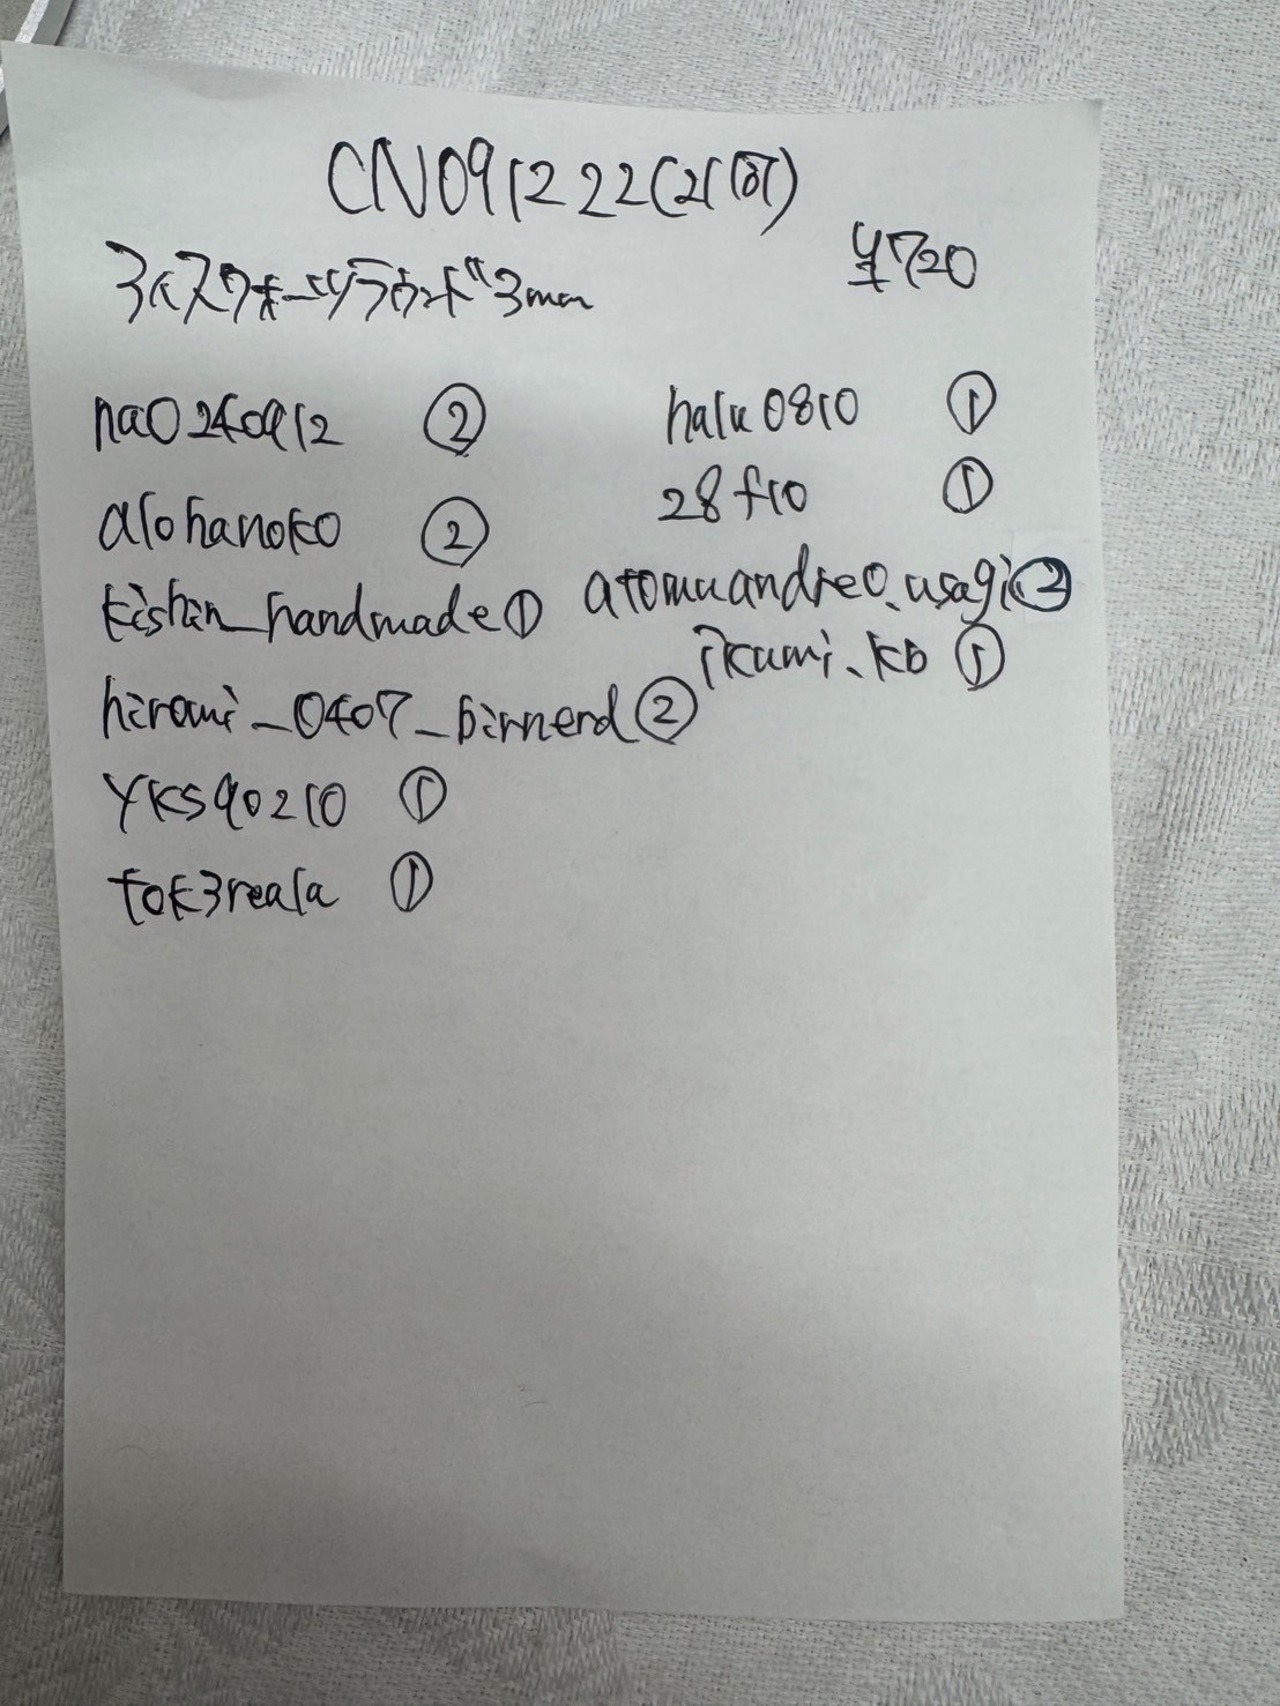 CN091222(2個)
¥720
アイスクォーツラウンド3mm
nao240912 ②
alohanoko ②
kishin_handmade ①
hiromi_0407_birnerd ②
YKS90210 ①
tok3reala ①
halu0810 ①
28f10 ①
atomuandreo.usagi ②
ikumi.kb ①